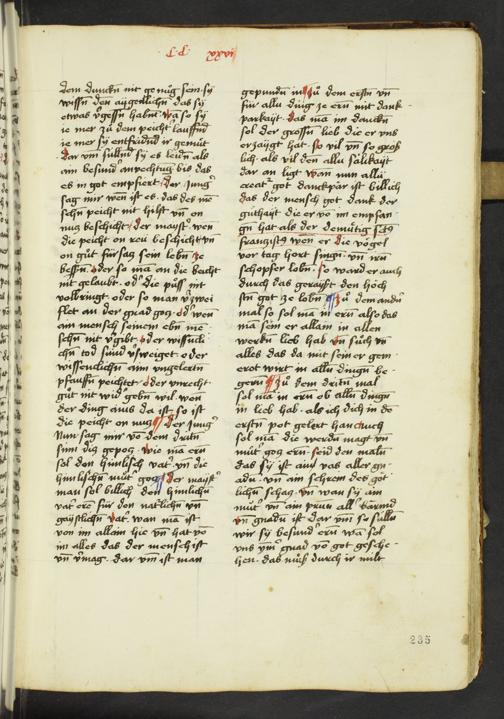 dem dunckn nit genug sein. sy
wissn den augenlichn das sy
etwas vgessn habnt wa so sy
ie mer zu dem peicht lauffnd
ie mer sy entfridnd ir gemut
dar vm sullnd sy es leidn als
ain besund anvechtug bis das
es in got empfiert. der Jung
sag mir wen ist es. das des me
schn peicht nit hilft vn on
nuz beschicht. der mayst wen
die peicht on reu beschicht vn
on gut fursaz sein lebn ze
bessn. oder so ma an die beicht
nit gelaubt. od die puss nit
volbringt. oder so man vzwei
flet an der gnad gog. od wen
ain mensch seinem ebn me
schn nit vgibt. oder wissnli
chn tod sund vsweiget. oder
wissenlichn aim ungelertn
pfaffn peichtet. oder unrecht
gut nit wid gebn wil. won
der ding ains da ist. so ist
die peicht on nuz. der Jung
Nun sag mir vo dem dritn
sinn dis gepog. wie ma ern
sol den himlisch vat vn die
himlischn mut gog. der mayst
man sol billich den himlichn
vat ere fur den natlichn vn
gaystlichn vat. wan ma ist
von im allain hie vn hat vo
im alles das der mensch ist
vn vmag. dar vm ist man
gepundn im zu dem erstn vn
fur allu ding ze ern mit dank
parkayt. das ma im danckn
sol der grossn lieb die er vns
erzaigt hat. so vil vn so groß
lich. als vil den allu sälikayt
dar an ligt wan nun allu
creat got danckpär ist billich
das der mensch got dank der
guthayt die er vo im empfan
gn hat als der demütig sts
franzists wen er die vögel
vor tag hort singn vn irn
schopfer lobn. so ward er auch
durch das geraytzt den höch
stn got ze lobn. zu dem andn
mal so sol ma in ern also das
ma sein er allain in allen
werkn lieb hab vn such vn
alles das da mit sein er gem
eret wirt in allu dingn be
gern. zu dem dritn mal
sol ma in ern ob allu dingn
in lieb hab. als ich dich in de
erstn pot gelert han. auch
sol ma die werdn magt vn
mut gog ern. seid den maln
das sy ist ain vas aller gn
adn. vn ain schrein des got
lichn schaz. vn wan sy ain
mut vn ain prun all barmd
vn gnadn ist dar vm so sulln
wir sy besund ern wa sol
vns vm gnad vo got gesche
hen. das muß durch ir milt
235